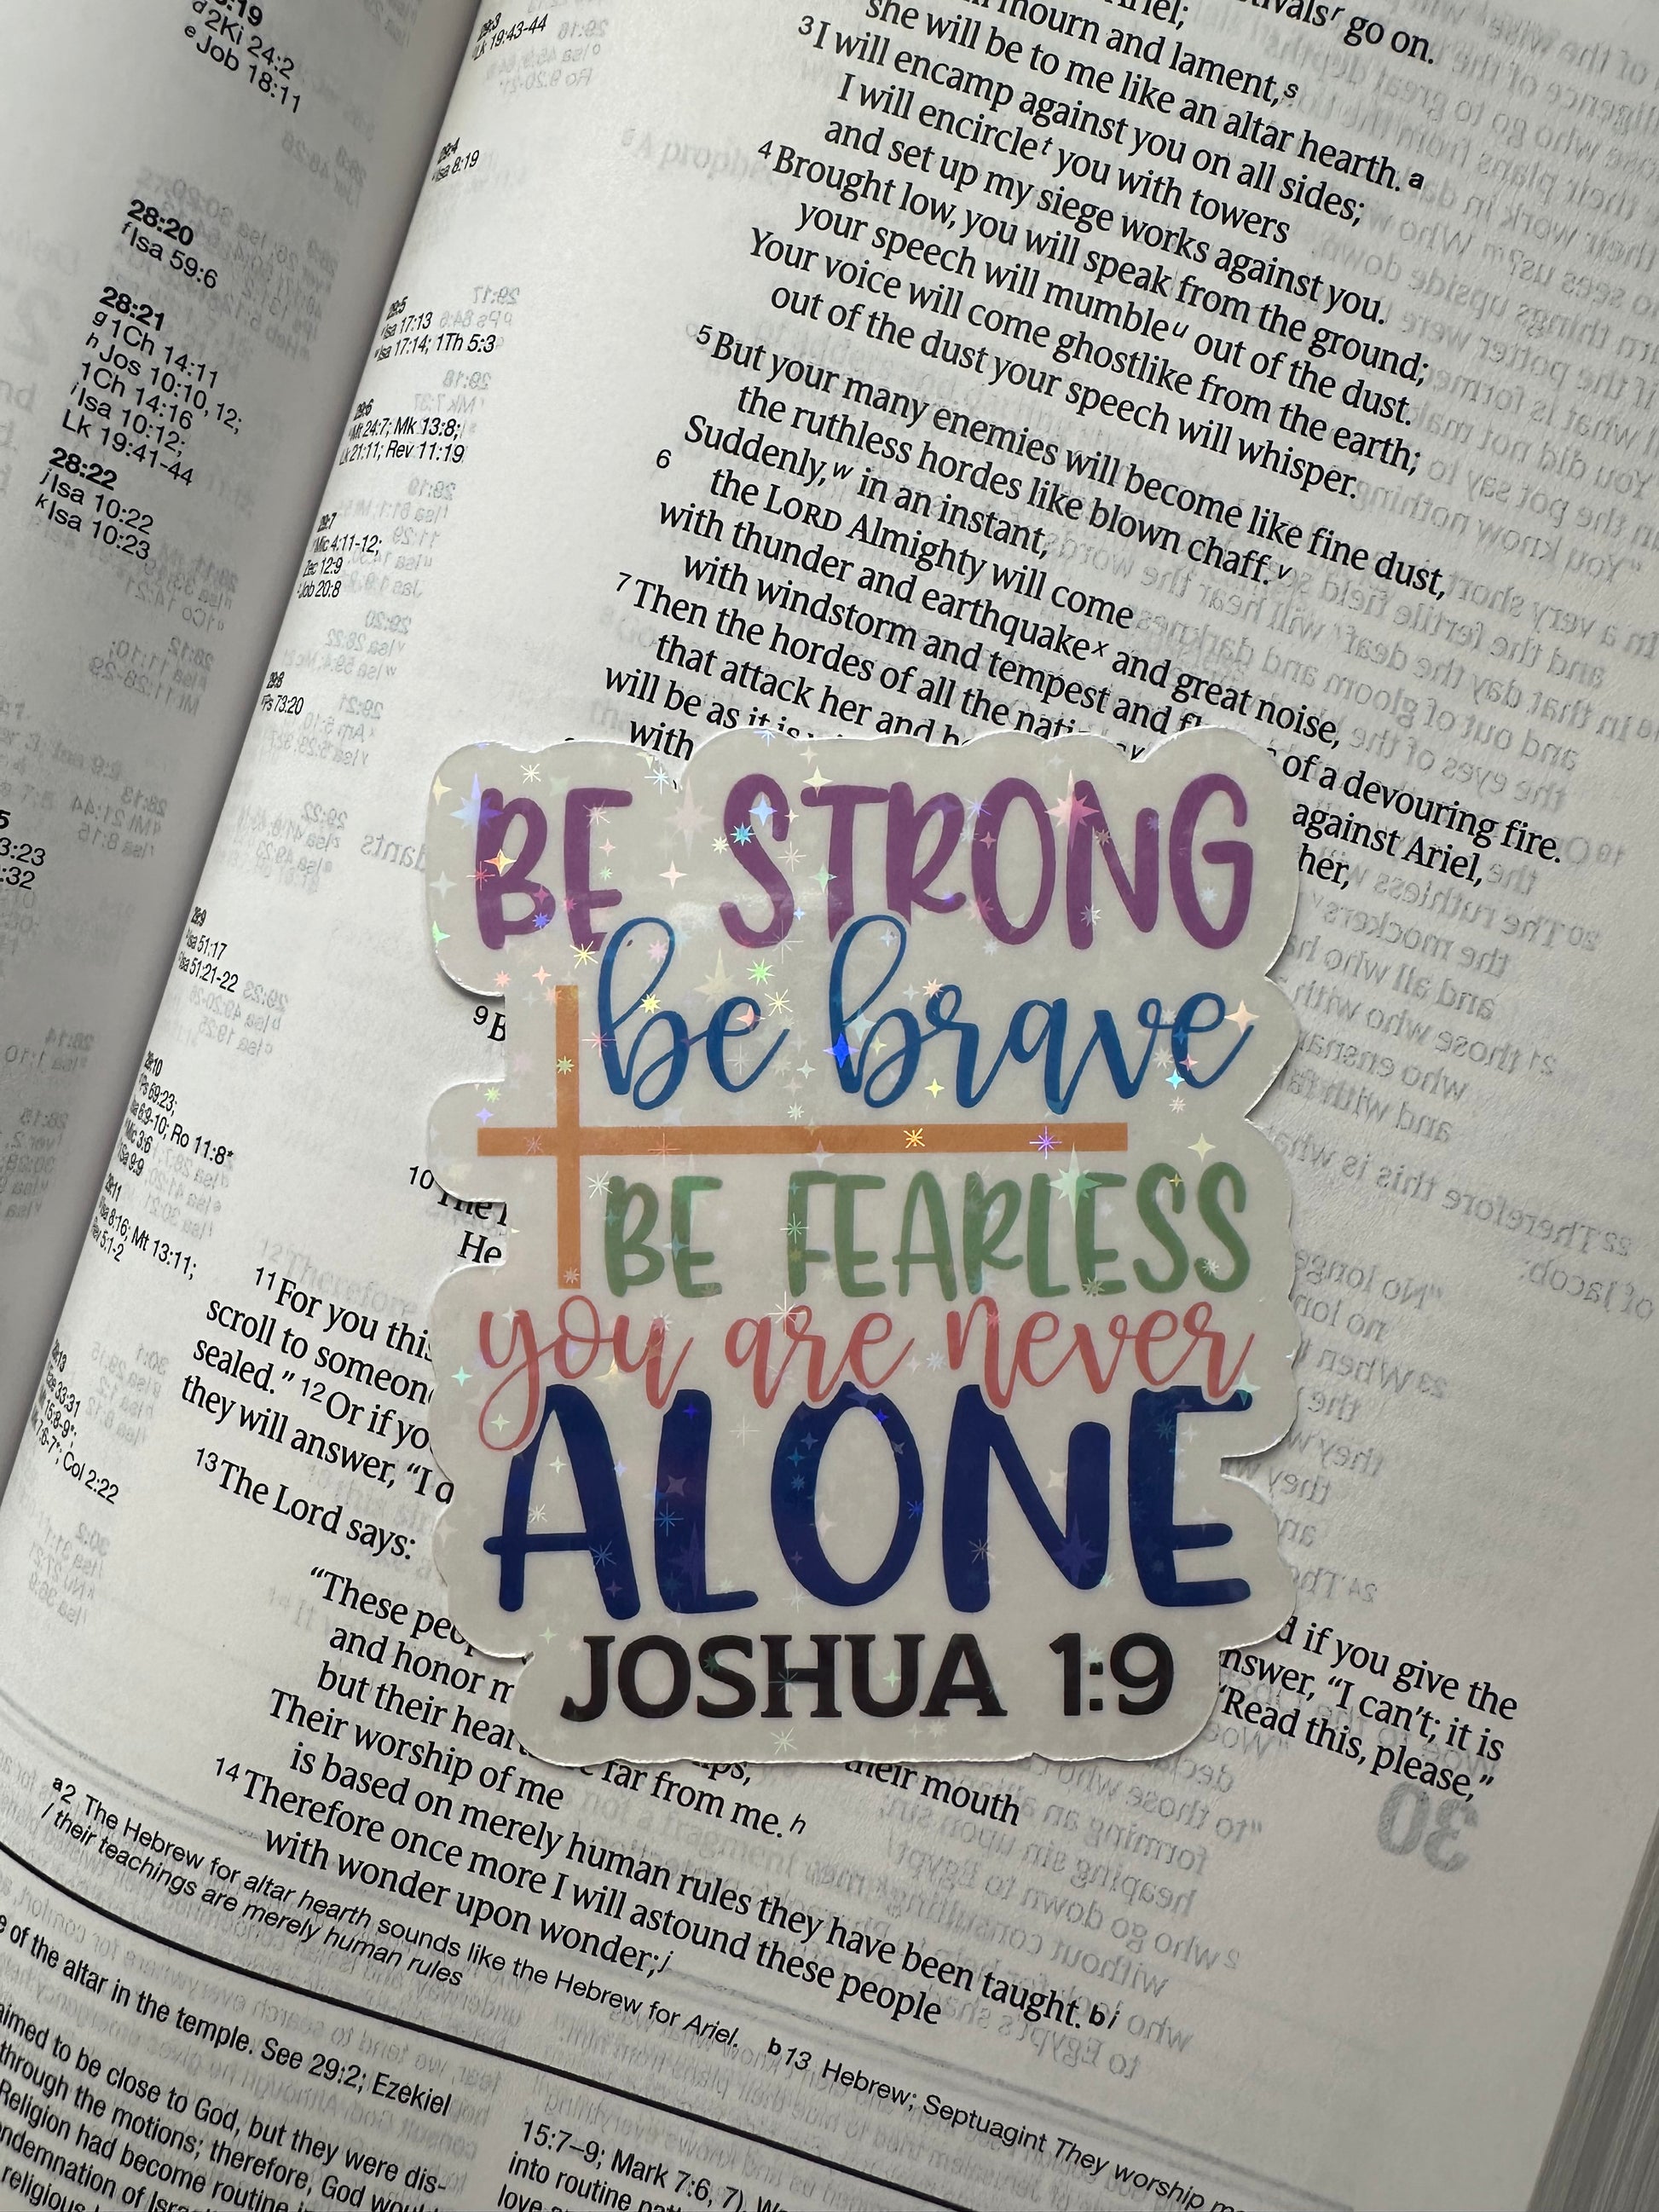 d2Ki 24:2
eJob 18:11
28:20
fIsa 59:6
28:21
g1Ch 14:11
hJos 10:10, 12;
1Ch 14:16
iIsa 10:12;
Lk 19:41-44
28:22
jIsa 10:22
kIsa 10:23
Lk 19:43-44
29:4
Isa 8:19
29:5
Isa 17:13
Isa 17:14; 1Th 5:3
29:6
Mt 24:7; Mk 13:8;
Lk 21:11; Rev 11:19
29:7
Mic 4:11-12;
Zec 12:9
Job 20:8
29:8
Ps 73:20
29:9
Isa 51:17
Isa 51:21-22
29:10
Ps 69:23;
Isa 6:9-10; Ro 11:8*
Mic 3:6
29:11
Isa 8:16; Mt 13:11;
Rev 5:1-2
Col 2:22
go on.
mourn and lament,s
she will be to me like an altar hearth. a
3 I will encamp against you on all sides;
I will encirclet you with towers
and set up my siege works against you.
4 Brought low, you will speak from the ground;
your speech will mumbleu out of the dust.
Your voice will come ghostlike from the earth;
out of the dust your speech will whisper.
5 But your many enemies will become like fine dust,
the ruthless hordes like blown chaff.v
Suddenly,w in an instant,
6 the LORD Almighty will come
with thunder and earthquakex and great noise,
with windstorm and tempest and of a devouring fire.
7 Then the hordes of all the against Ariel,
that attack her and her,
will be as it is
with
BE STRONG
be brave
BE FEARLESS
you are never
ALONE
JOSHUA 1:9
9
10 The
He
11 For you this
scroll to if you give the
sealed." 12 Or if answer, "I can't; it is
they will answer, "I "Read this, please,"
13 The Lord says:
"These
and honor their mouth
but their far from me.h
Their worship of me
is based on merely human rules they have been taught. b i
14 Therefore once more I will astound these people
with wonder upon wonder;j
a2 The Hebrew for altar hearth sounds like the Hebrew for Ariel. b13 Hebrew; Septuagint They worship
/ their teachings are merely human rules
of the altar in the temple. See 29:2; Ezekiel
to be close to God, but they were dis-
through the motions; therefore, God
Religion had become routine
religious
15:7–9; Mark 7:6, 7).
into routine